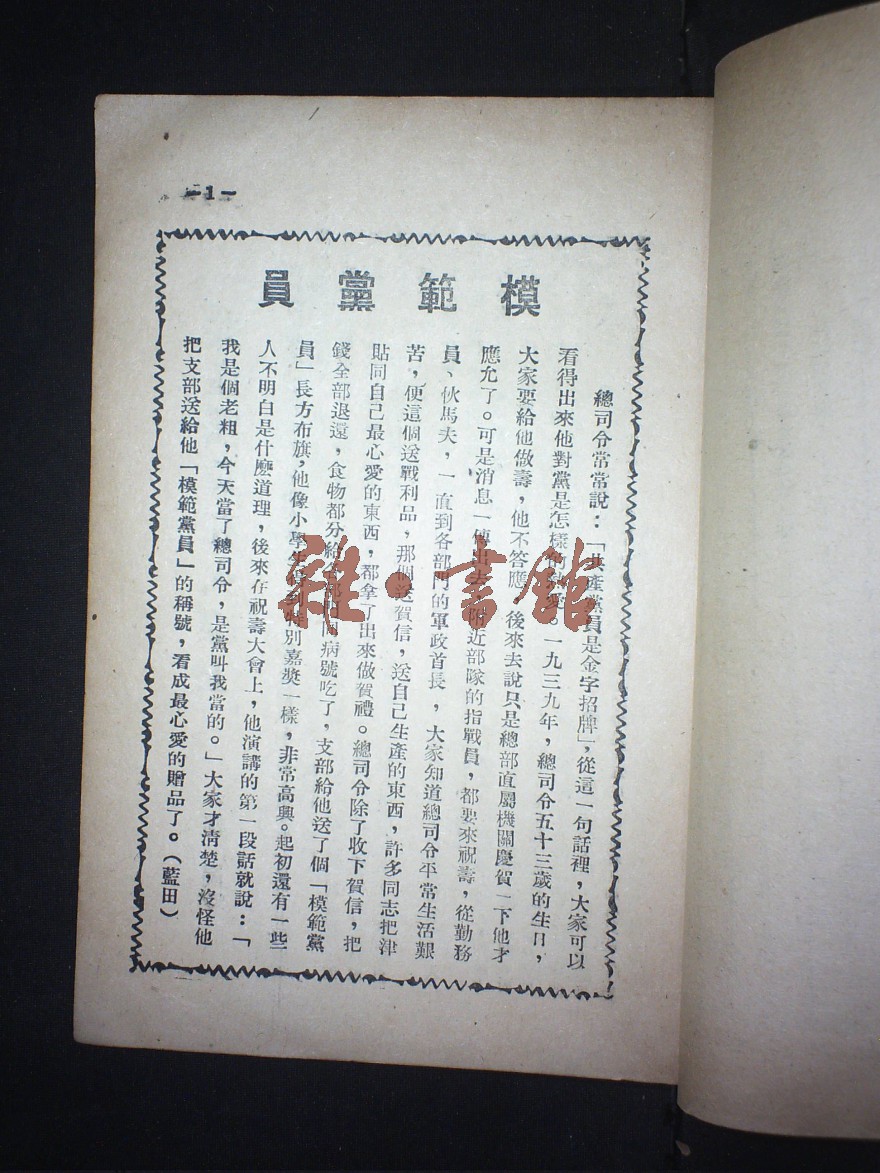 -1-
模範黨員
總司令常常說:「共產黨員是金字招牌」,從這一句話裡,大家可以
看得出來他對黨是怎樣的熱愛。一九三九年,總司令五十三歲的生日,
大家要給他做壽,他不答應,後來去說只是總部直屬機關慶賀一下他才
應允了。可是消息一傳出去,附近部隊的指戰員,都要來祝壽,從勤務
員、伙馬夫,一直到各部門的軍政首長,大家知道總司令平常生活艱
苦,便這個送戰利品,那個送賀信,送自己生產的東西,許多同志把津
貼同自己最心愛的東西,都拿了出來做賀禮。總司令除了收下賀信,把
錢全部退還,食物都分給病號吃了,支部給他送了個「模範黨
員」長方布旗,他像小學生得到特別嘉獎一樣,非常高興。起初還有一些
人不明白是什麽道理,後來在祝壽大會上,他演講的第一段話就說:「
我是個老粗,今天當了總司令,是黨叫我當的。」大家才清楚,沒怪他
把支部送給他「模範黨員」的稱號,看成最心愛的贈品了。(藍田)
雜·書館